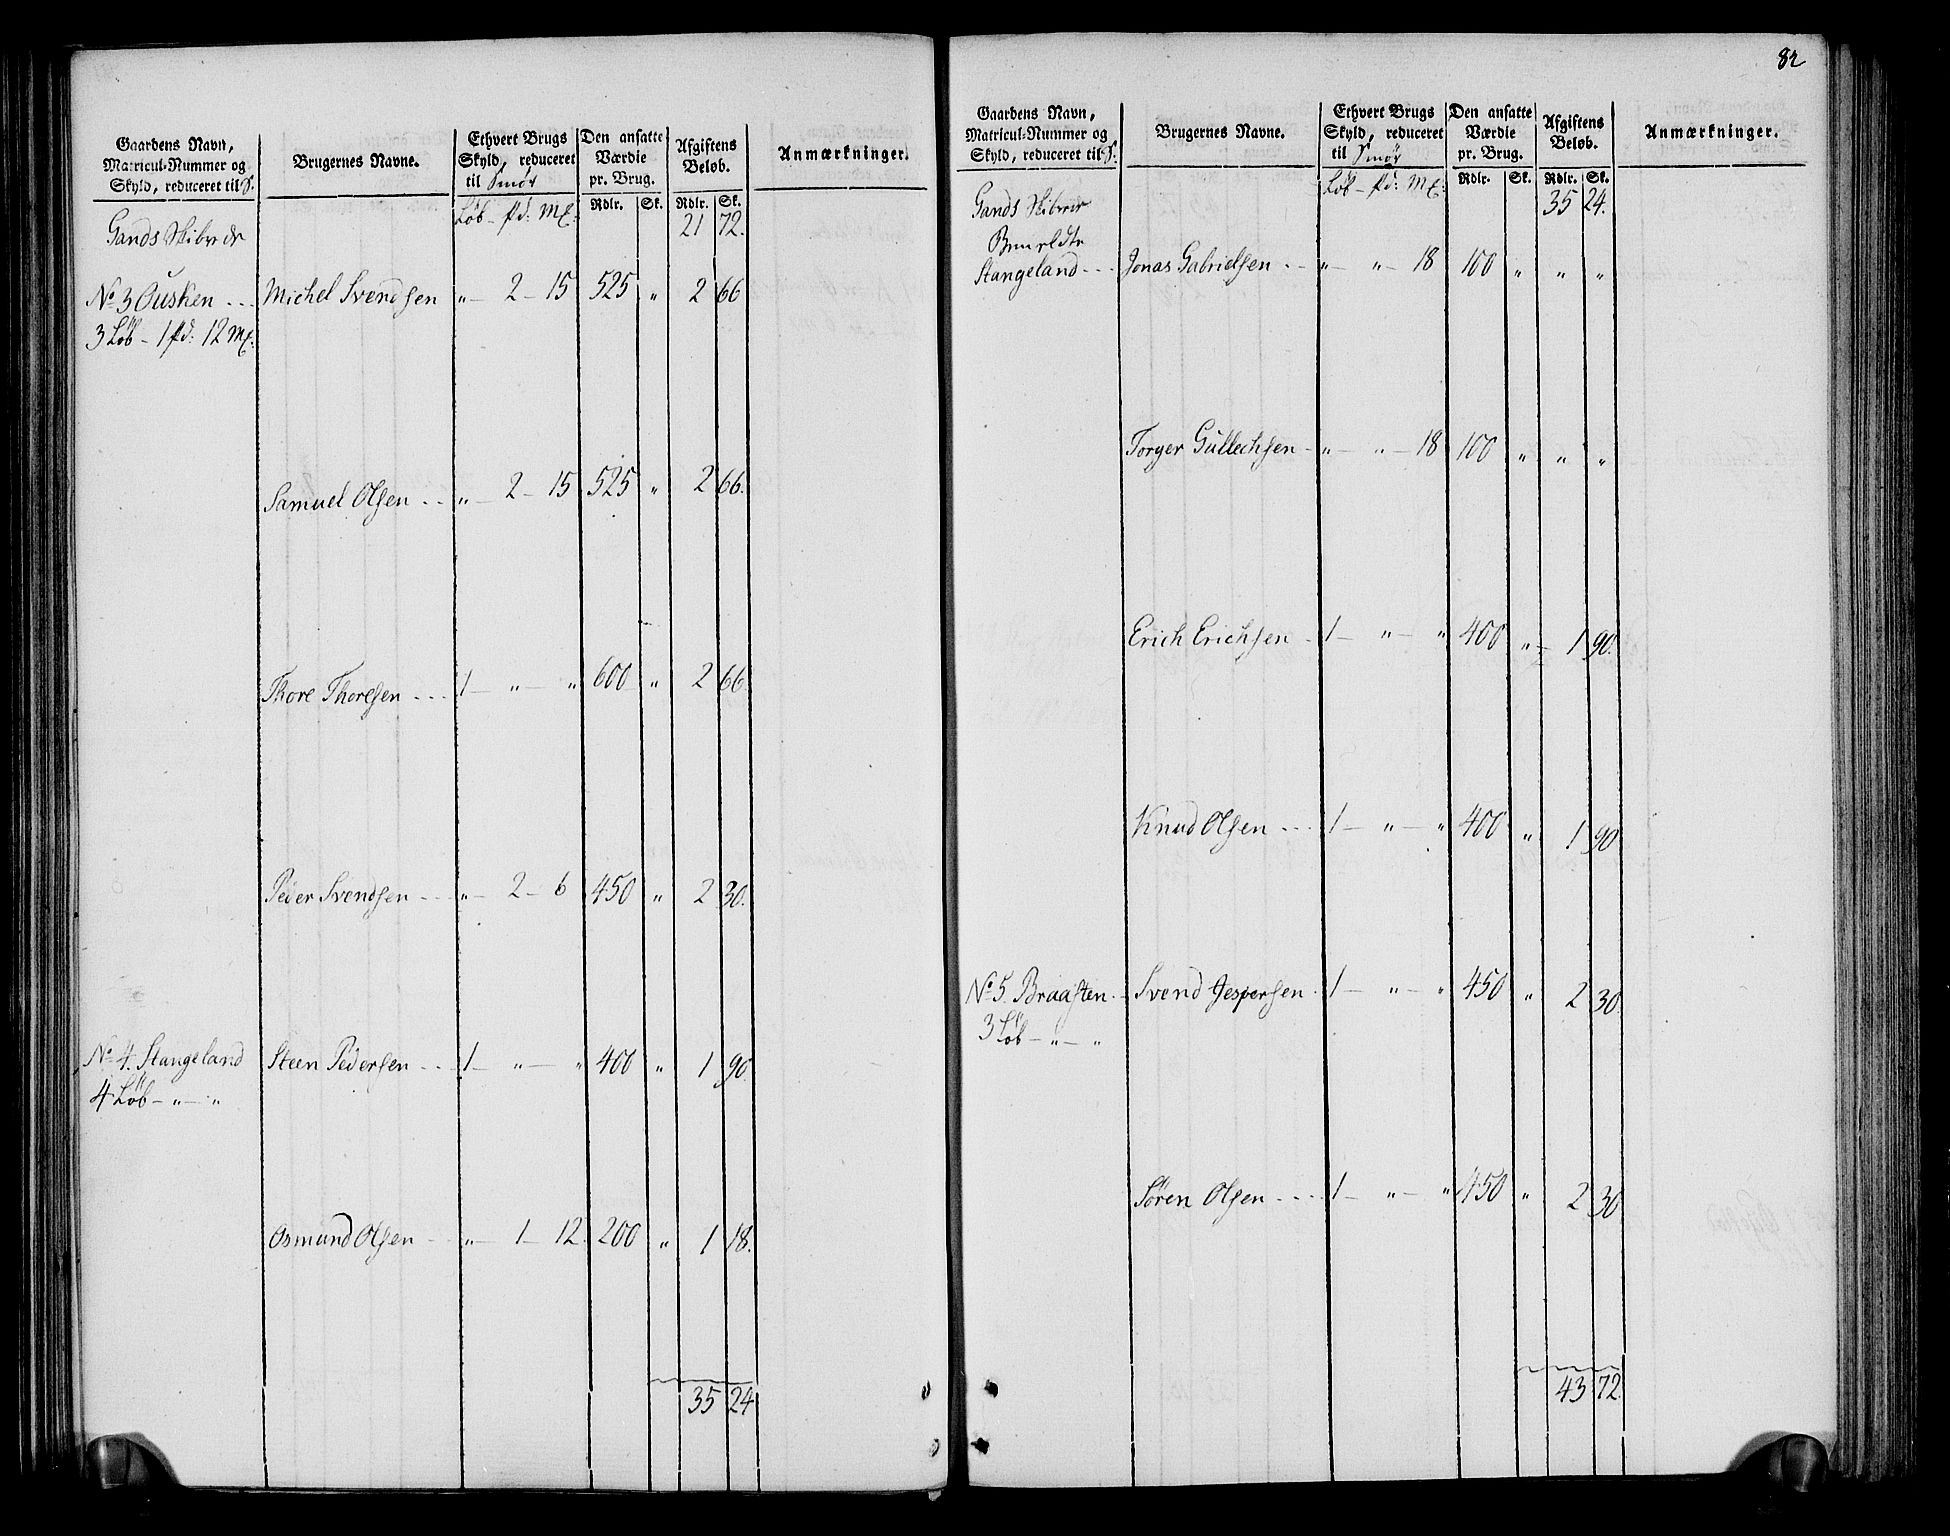 Gaardens Navn,
Matricul-Nummer og
Skyld, reduceret til S.
Brugernes Navne.
Ethvert Brugs
Skyld, reduceret
til Smør
Den ansatte
Værdie
pr. Brug.
Afgiftens
Beløb.
Anmærkninger.
Løb - pd: Mk:
Rdlr. Sk. Rdlr. Sk.
Gands Skibrede 21 72.
No 3 Ousken ... Michel Svendsen „ - 2 - 15 525 „ 2 66
3 Løb - 1 pd: 12 Mk:
Samuel Olsen .. „ - 2 - 15 525 „ 2 66.
Thore Thoresen ... 1 - „ - „ 600 „ 2 66.
Peder Svendsen ... „ - 2 - 6 450 „ 2 30.
No 4. Stangeland Steen Pedersen ... 1 - „ - „ 400 „ 1 90.
4 Løb - „ - „
Osmund Olsen - „ - 1 - 12. 200 „ 1 18.
35 24
82
Gaardens Navn,
Matricul-Nummer og
Skyld, reduceret til S.
Brugernes Navne.
Ethvert Brugs
Skyld, reduceret
til Smør
Den ansatte
Værdie
pr. Brug.
Afgiftens
Beløb.
Anmærkninger.
Løb - pd: Mk:
Rdlr. Sk. Rdlr. Sk.
Gands Skibrede 35 24.
Stangeland ... Jonas Gabrielsen .. „ - „ - 18 100 „ „ „
Torger Gullechsen - „ - „ - 18 100 „ „ „
Erich Erichsen . 1 - „ - „ 400 „ 1 90.
Knud Olsen ... 1 - „ - „ 400 „ 1 90
No 5. Braasten .. Svend Jespersen . 1 - „ - „ 450 „ 2 30
3 Løb - „ - „
Søren Olsen .... 1 - „ - „ 450 „ 2 30
43 72.